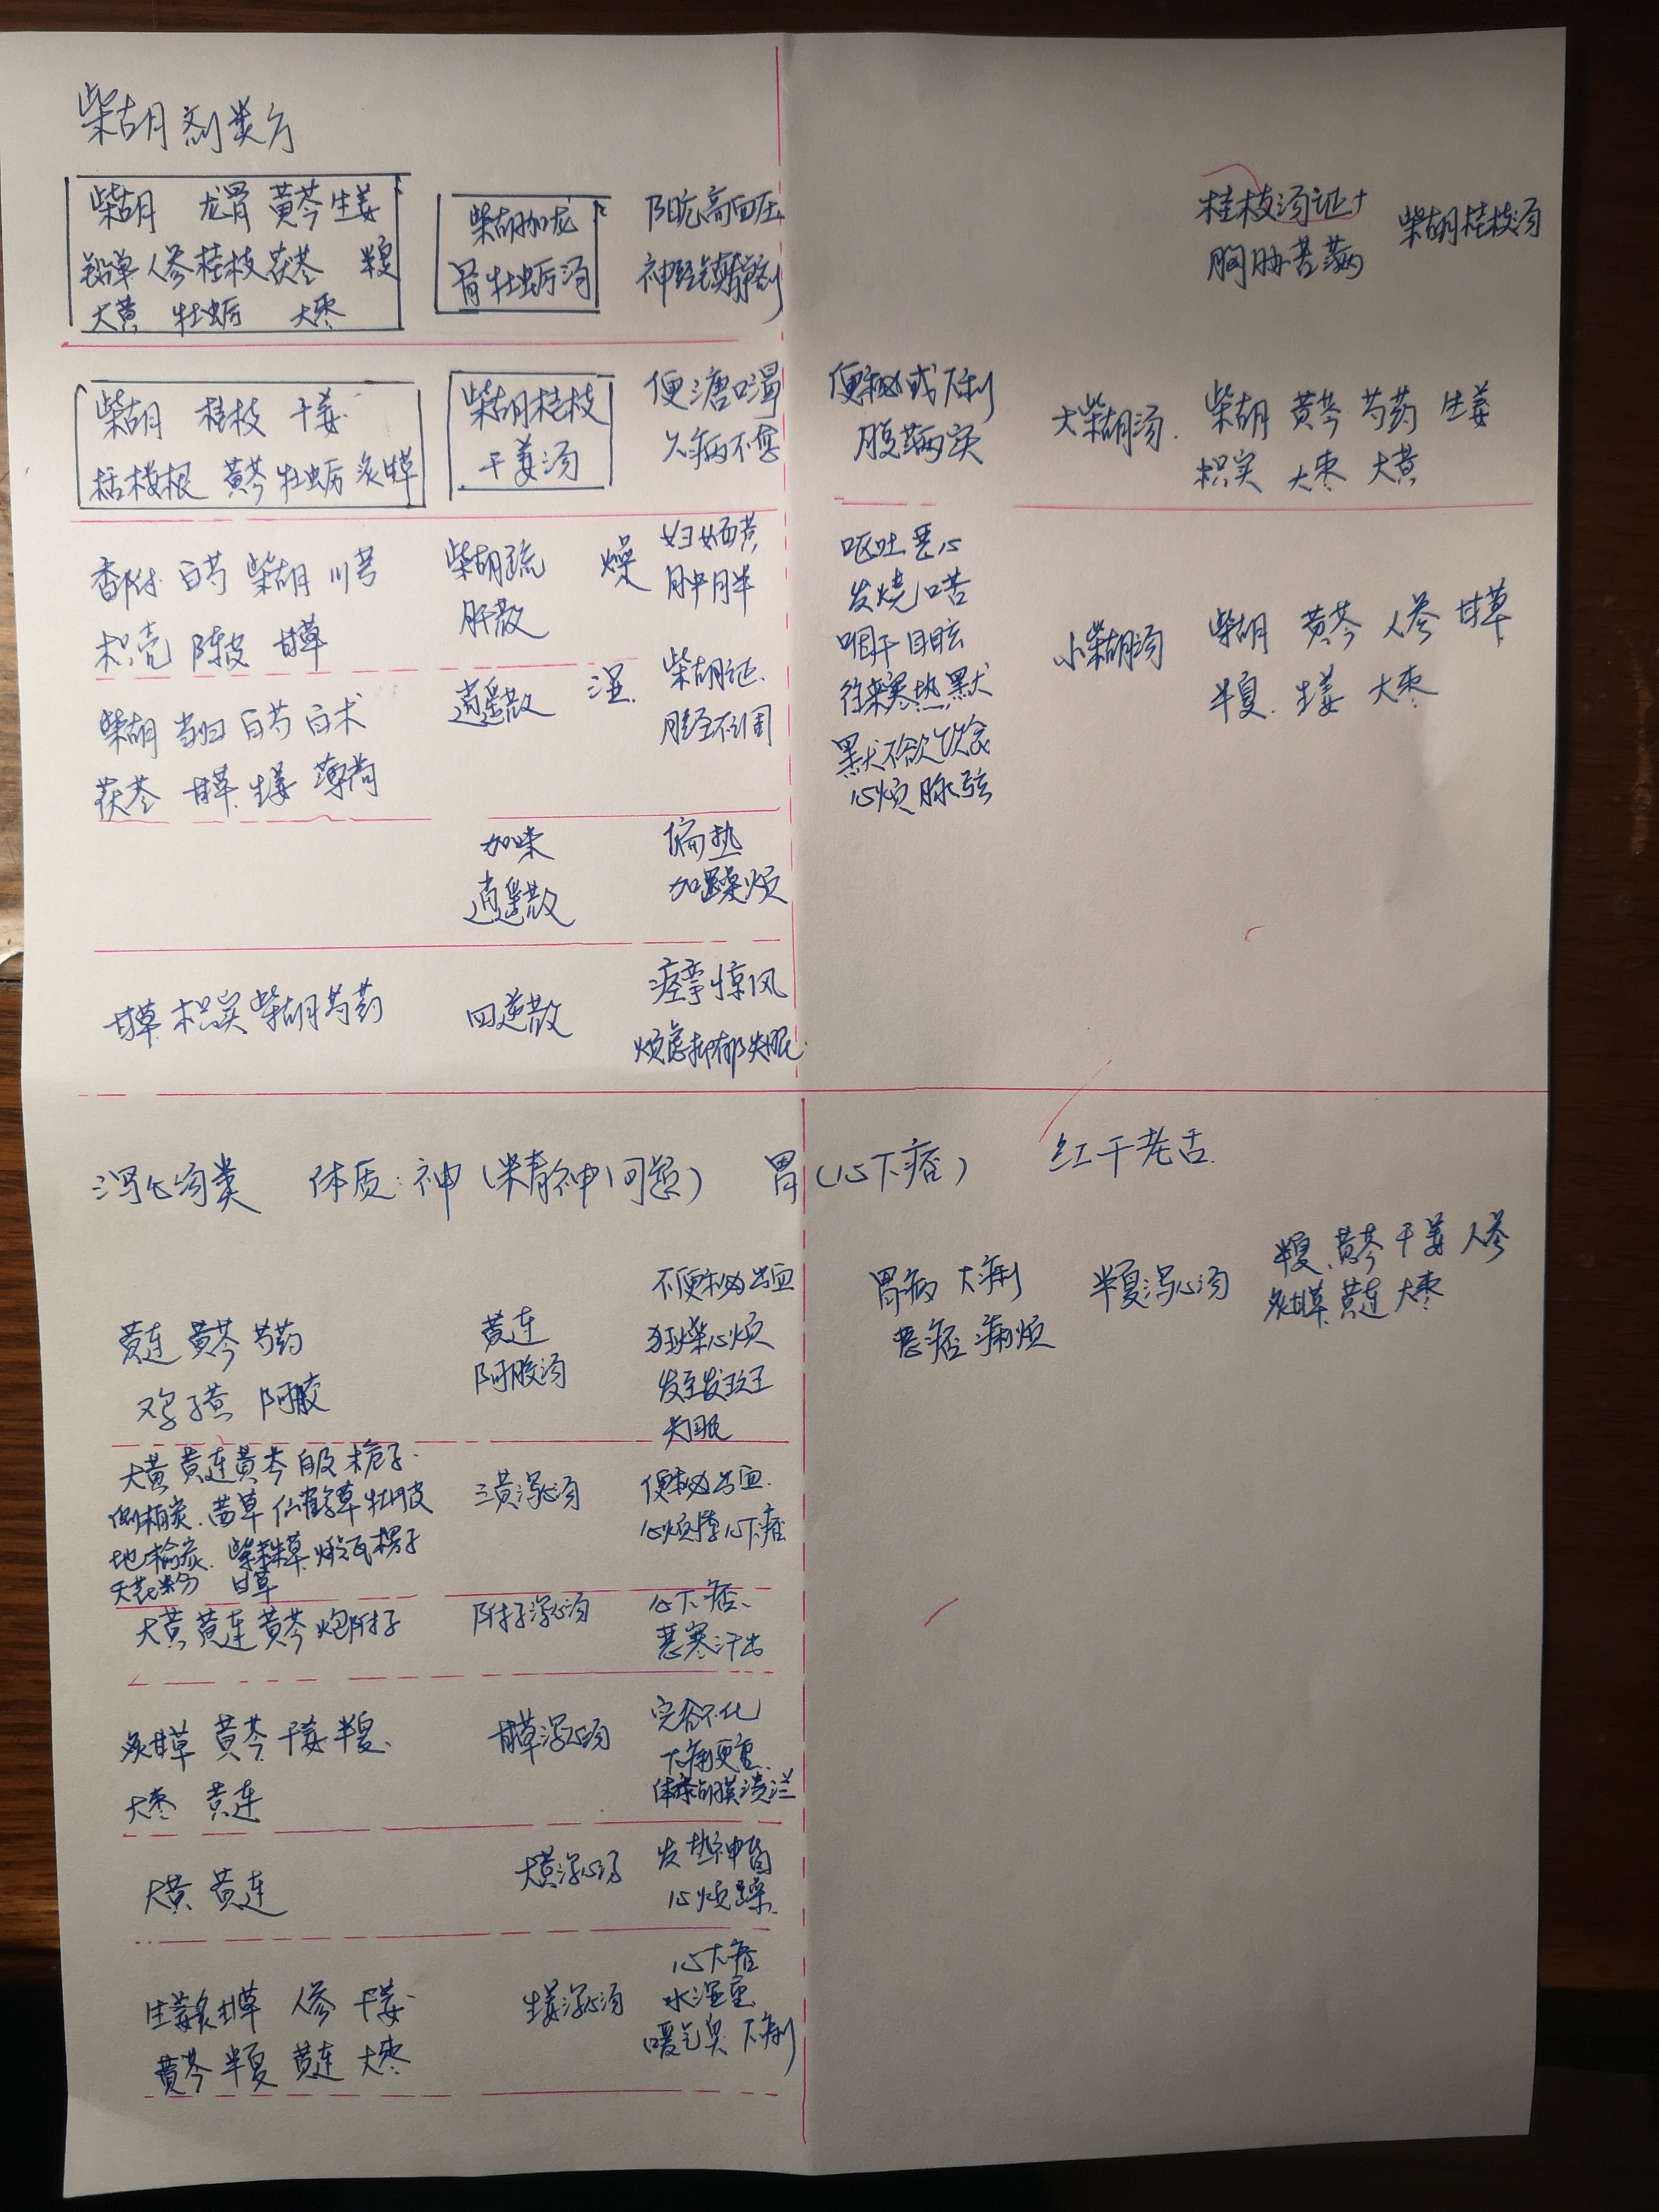 柴胡剂类方
柴胡 龙骨 黄芩 生姜
铅草 人参 桂枝 茯苓 半夏
大黄 牡蛎 大枣
柴胡加龙
骨牡蛎汤
阳亢高血压
神经镇静剂
桂枝汤证+
胸胁苦满
柴胡桂枝汤
柴胡 桂枝 干姜
栝楼根 黄芩 牡蛎 炙甘草
柴胡桂枝
干姜汤
便溏口渴
久病不愈
便秘或下利
腹满实
大柴胡汤
柴胡 黄芩 芍药 生姜
枳实 大枣 大黄
香附 白芍 柴胡 川芎
枳壳 陈皮 甘草
柴胡疏
肝散
燥
妇女西荒
月中月半
呕吐恶心
发烧口苦
咽干目眩
往来寒热,默
默不欲饮食
心烦脉弦
小柴胡汤
柴胡 黄芩 人参 甘草
半夏 生姜 大枣
柴胡 当归 白芍 白术
茯苓 甘草 生姜 薄荷
逍遥散
湿
柴胡证
月经不调
加味
逍遥散
偏热
加躁烦
甘草 枳实 柴胡 芍药
四逆散
痉挛惊风
烦急抑郁失眠
泻心汤类 体质:神(精神问题) 胃(心下痞) 红干老舌
黄连 黄芩 芍药
鸡子黄 阿胶
黄连
阿胶汤
不便秘出血
狂燥心烦
发斑
失眠
胃病 下利
恶痞 满烦
半夏泻心汤
半夏 黄芩 干姜 人参
炙甘草 黄连 大枣
大黄 黄连 黄芩 白及 栀子
侧柏炭 茜草 仙鹤草 牡丹皮
地榆炭 紫珠草 煅瓦楞子
天花粉 甘草
三黄泻心汤
便秘出血
心烦悸心下痞
大黄 黄连 黄芩 炮附子
附子泻心汤
心下痞、
恶寒汗出
炙甘草 黄芩 干姜 半夏
大枣 黄连
甘草泻心汤
完谷不化
下利更重
体表黏膜溃烂
大黄 黄连
大黄泻心汤
发热神昏
心烦躁
生姜 炙甘草 人参 干姜
黄芩 半夏 黄连 大枣
生姜泻心汤
心下痞
水湿重
嗳气臭 下利